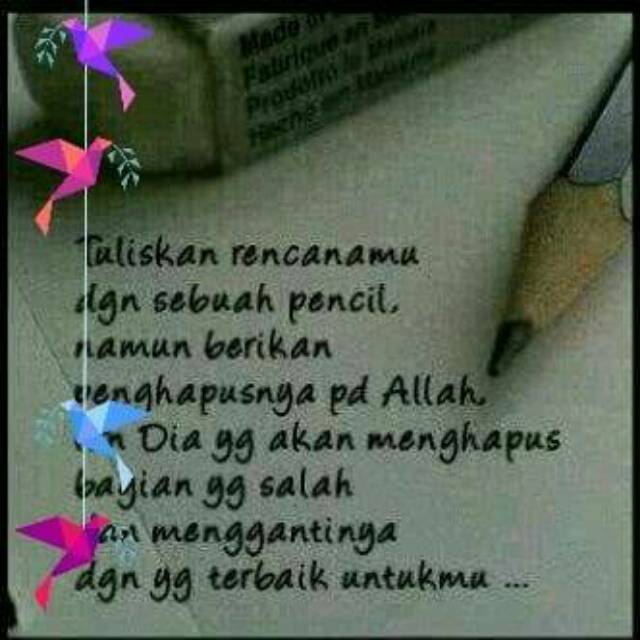 Made in
Fabriqué en
Prodotto in Malaysia
Tuliskan rencanamu
dgn sebuah pencil,
namun berikan
penghapusnya pd Allah.
Dia yg akan menghapus
bagian yg salah
dan menggantinya
dgn yg terbaik untukmu ...